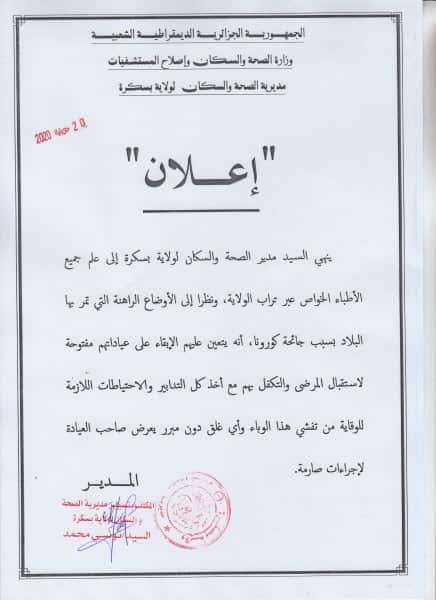 الجمهورية الجزائرية الديمقراطية الشعبية
وزارة الصحة والسكان وإصلاح المستشفيات
مديرية الصحة والسكان لولاية بسكرة
20 2020
"إعلان"
ينهي السيد مدير الصحة والسكان لولاية بسكرة إلى علم جميع
الأطباء الخواص عبر تراب الولاية، ونظرا إلى الأوضاع الراهنة التي تمر بها
البلاد بسبب جائحة كورونا، أنه يتعين عليهم الإبقاء على عياداتهم مفتوحة
لاستقبال المرضى والتكفل بهم مع أخذ كل التدابير والاحتياطات اللازمة
للوقاية من تفشي هذا الوباء وأي غلق دون مبرر يعرض صاحب العيادة
لإجراءات صارمة.
المدير
مديرية الصحة
بسكرة
السيد محمد